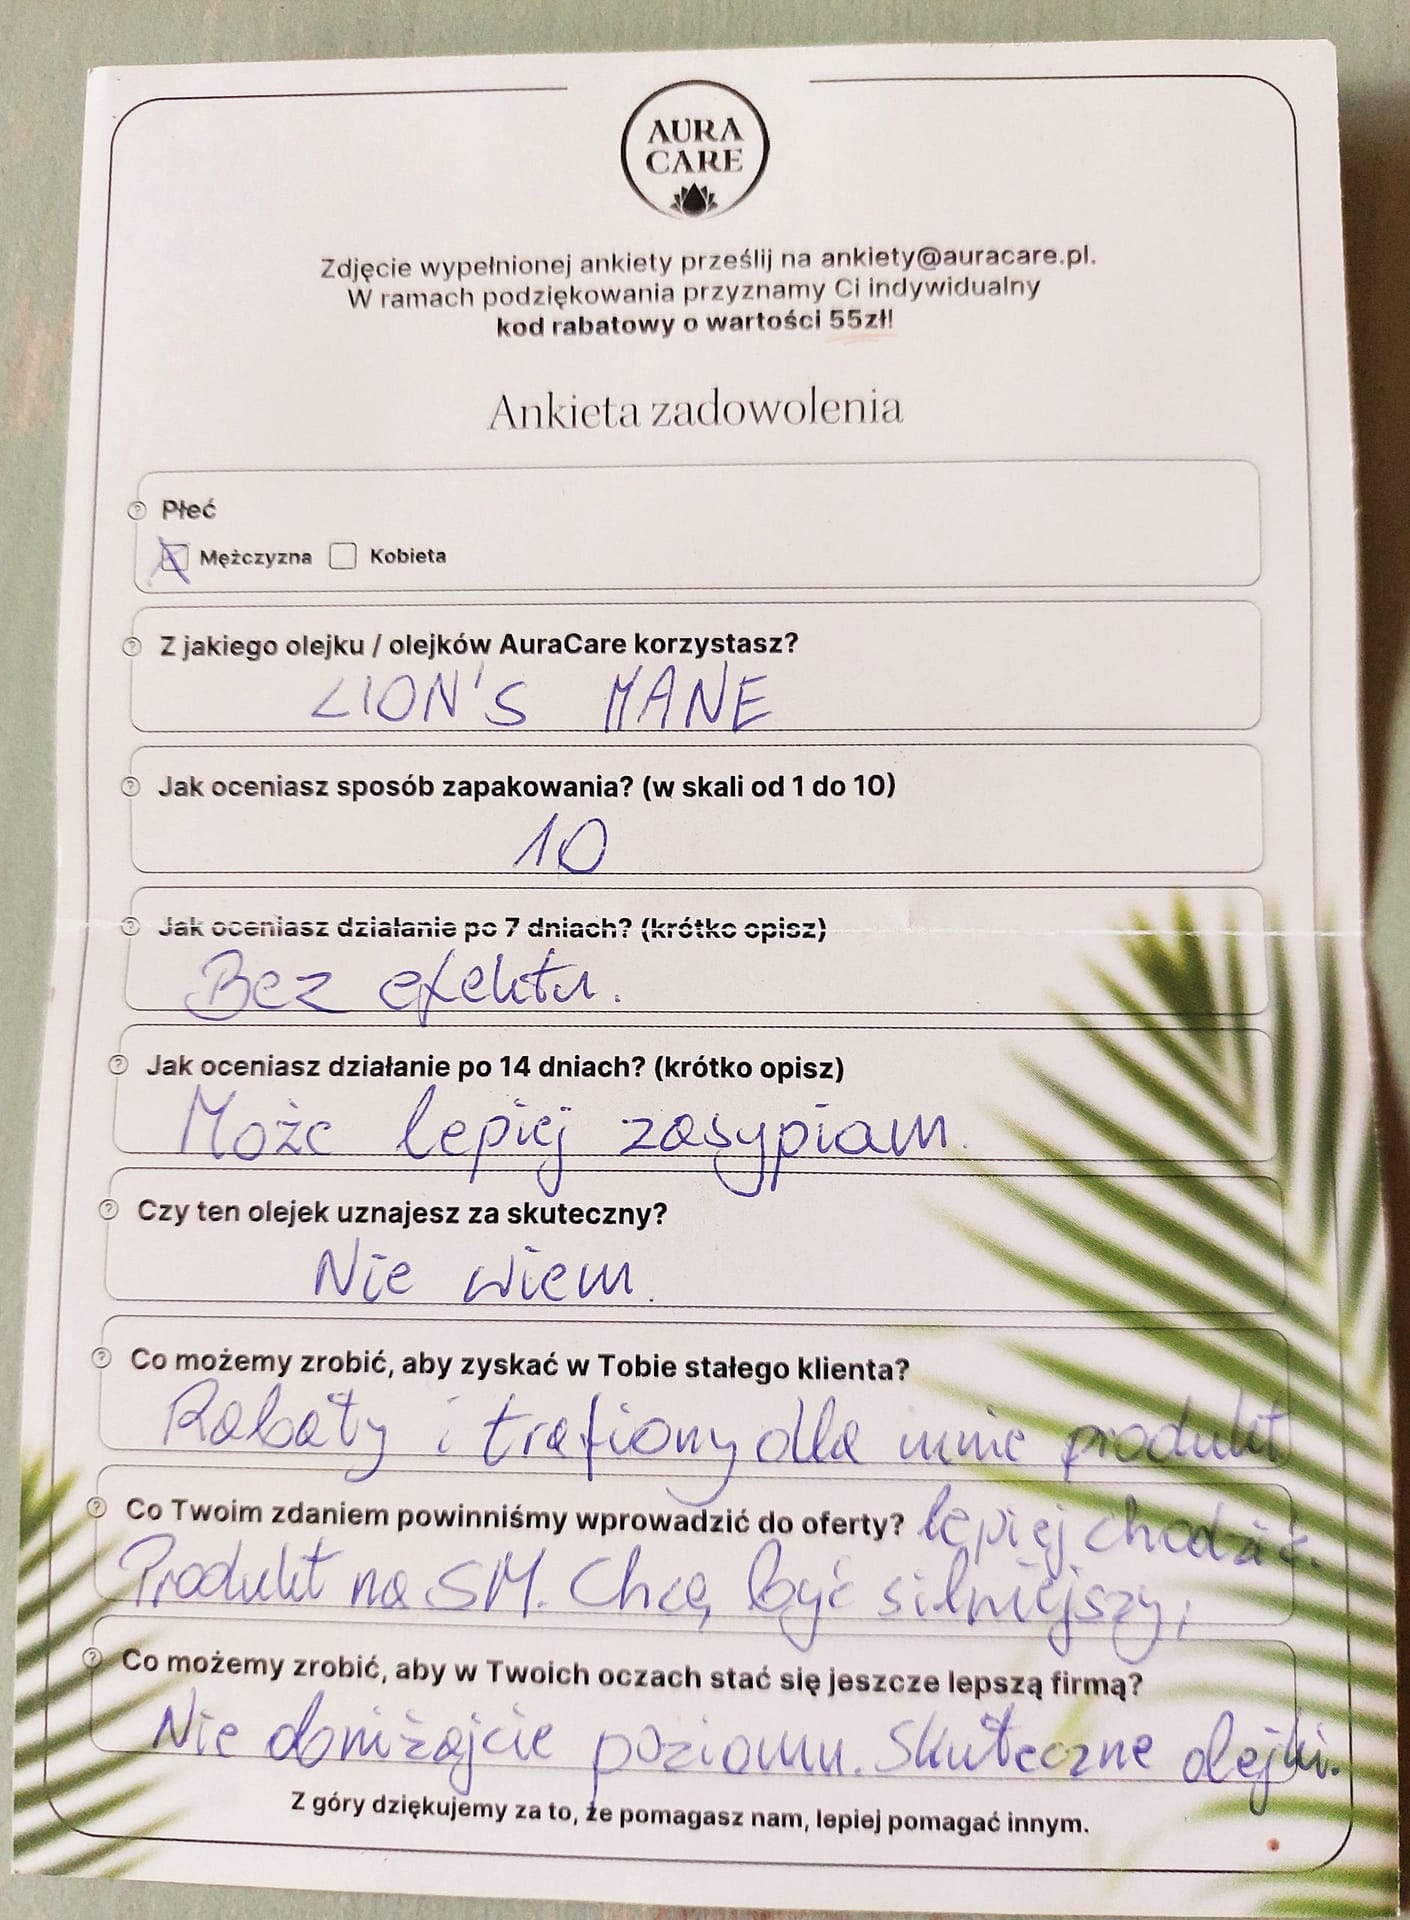 AURA
CARE
Zdjęcie wypełnionej ankiety prześlij na ankiety@auracare.pl.
W ramach podziękowania przyznamy Ci indywidualny
kod rabatowy o wartości 55zł!
Ankieta zadowolenia
Płeć
Mężczyzna Kobieta
Z jakiego olejku / olejków AuraCare korzystasz?
LION'S MANE
Jak oceniasz sposób zapakowania? (w skali od 1 do 10)
10
Jak oceniasz działanie po 7 dniach? (krótko opisz)
Bez efektu.
Jak oceniasz działanie po 14 dniach? (krótko opisz)
Może lepiej zasypiam.
Czy ten olejek uznajesz za skuteczny?
Nie wiem.
Co możemy zrobić, aby zyskać w Tobie stałego klienta?
Rabaty i trafiony dla mnie produkt
Co Twoim zdaniem powinniśmy wprowadzić do oferty?
Produkt na SM. Chcę być silniejszy,
lepiej chodzić.
Co możemy zrobić, aby w Twoich oczach stać się jeszcze lepszą firmą?
Nie obniżajcie poziomu. Skuteczne olejki.
Z góry dziękujemy za to, że pomagasz nam, lepiej pomagać innym.